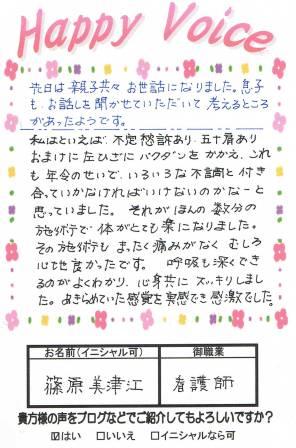 Happy Voice
先日は親子共々お世話になりました。息子
もお話しを聞かせていただいて考えるところ
があったようです。
私はといえば不定愁訴あり五十肩あり
おまけに左ひざにバクダンをかかえ、これ
も年令のせいで、いろいろな不調と付き
合っていかなければいけないのかなーと
思っていました。それがほんの数分の
施術で体がとても楽になりました。
その施術もまったく痛みがなくむしろ
心地良かったです。呼吸も深くできる
のがよくわかり、心身共にスッキリしまし
た。あきらめていた感覚を実感でき感激でした。
お名前(イニシャル可) 御職業
篠原美津江 看護師
貴方様の声をブログなどでご紹介してもよろしいですか?
☑はい □いいえ □イニシャルなら可